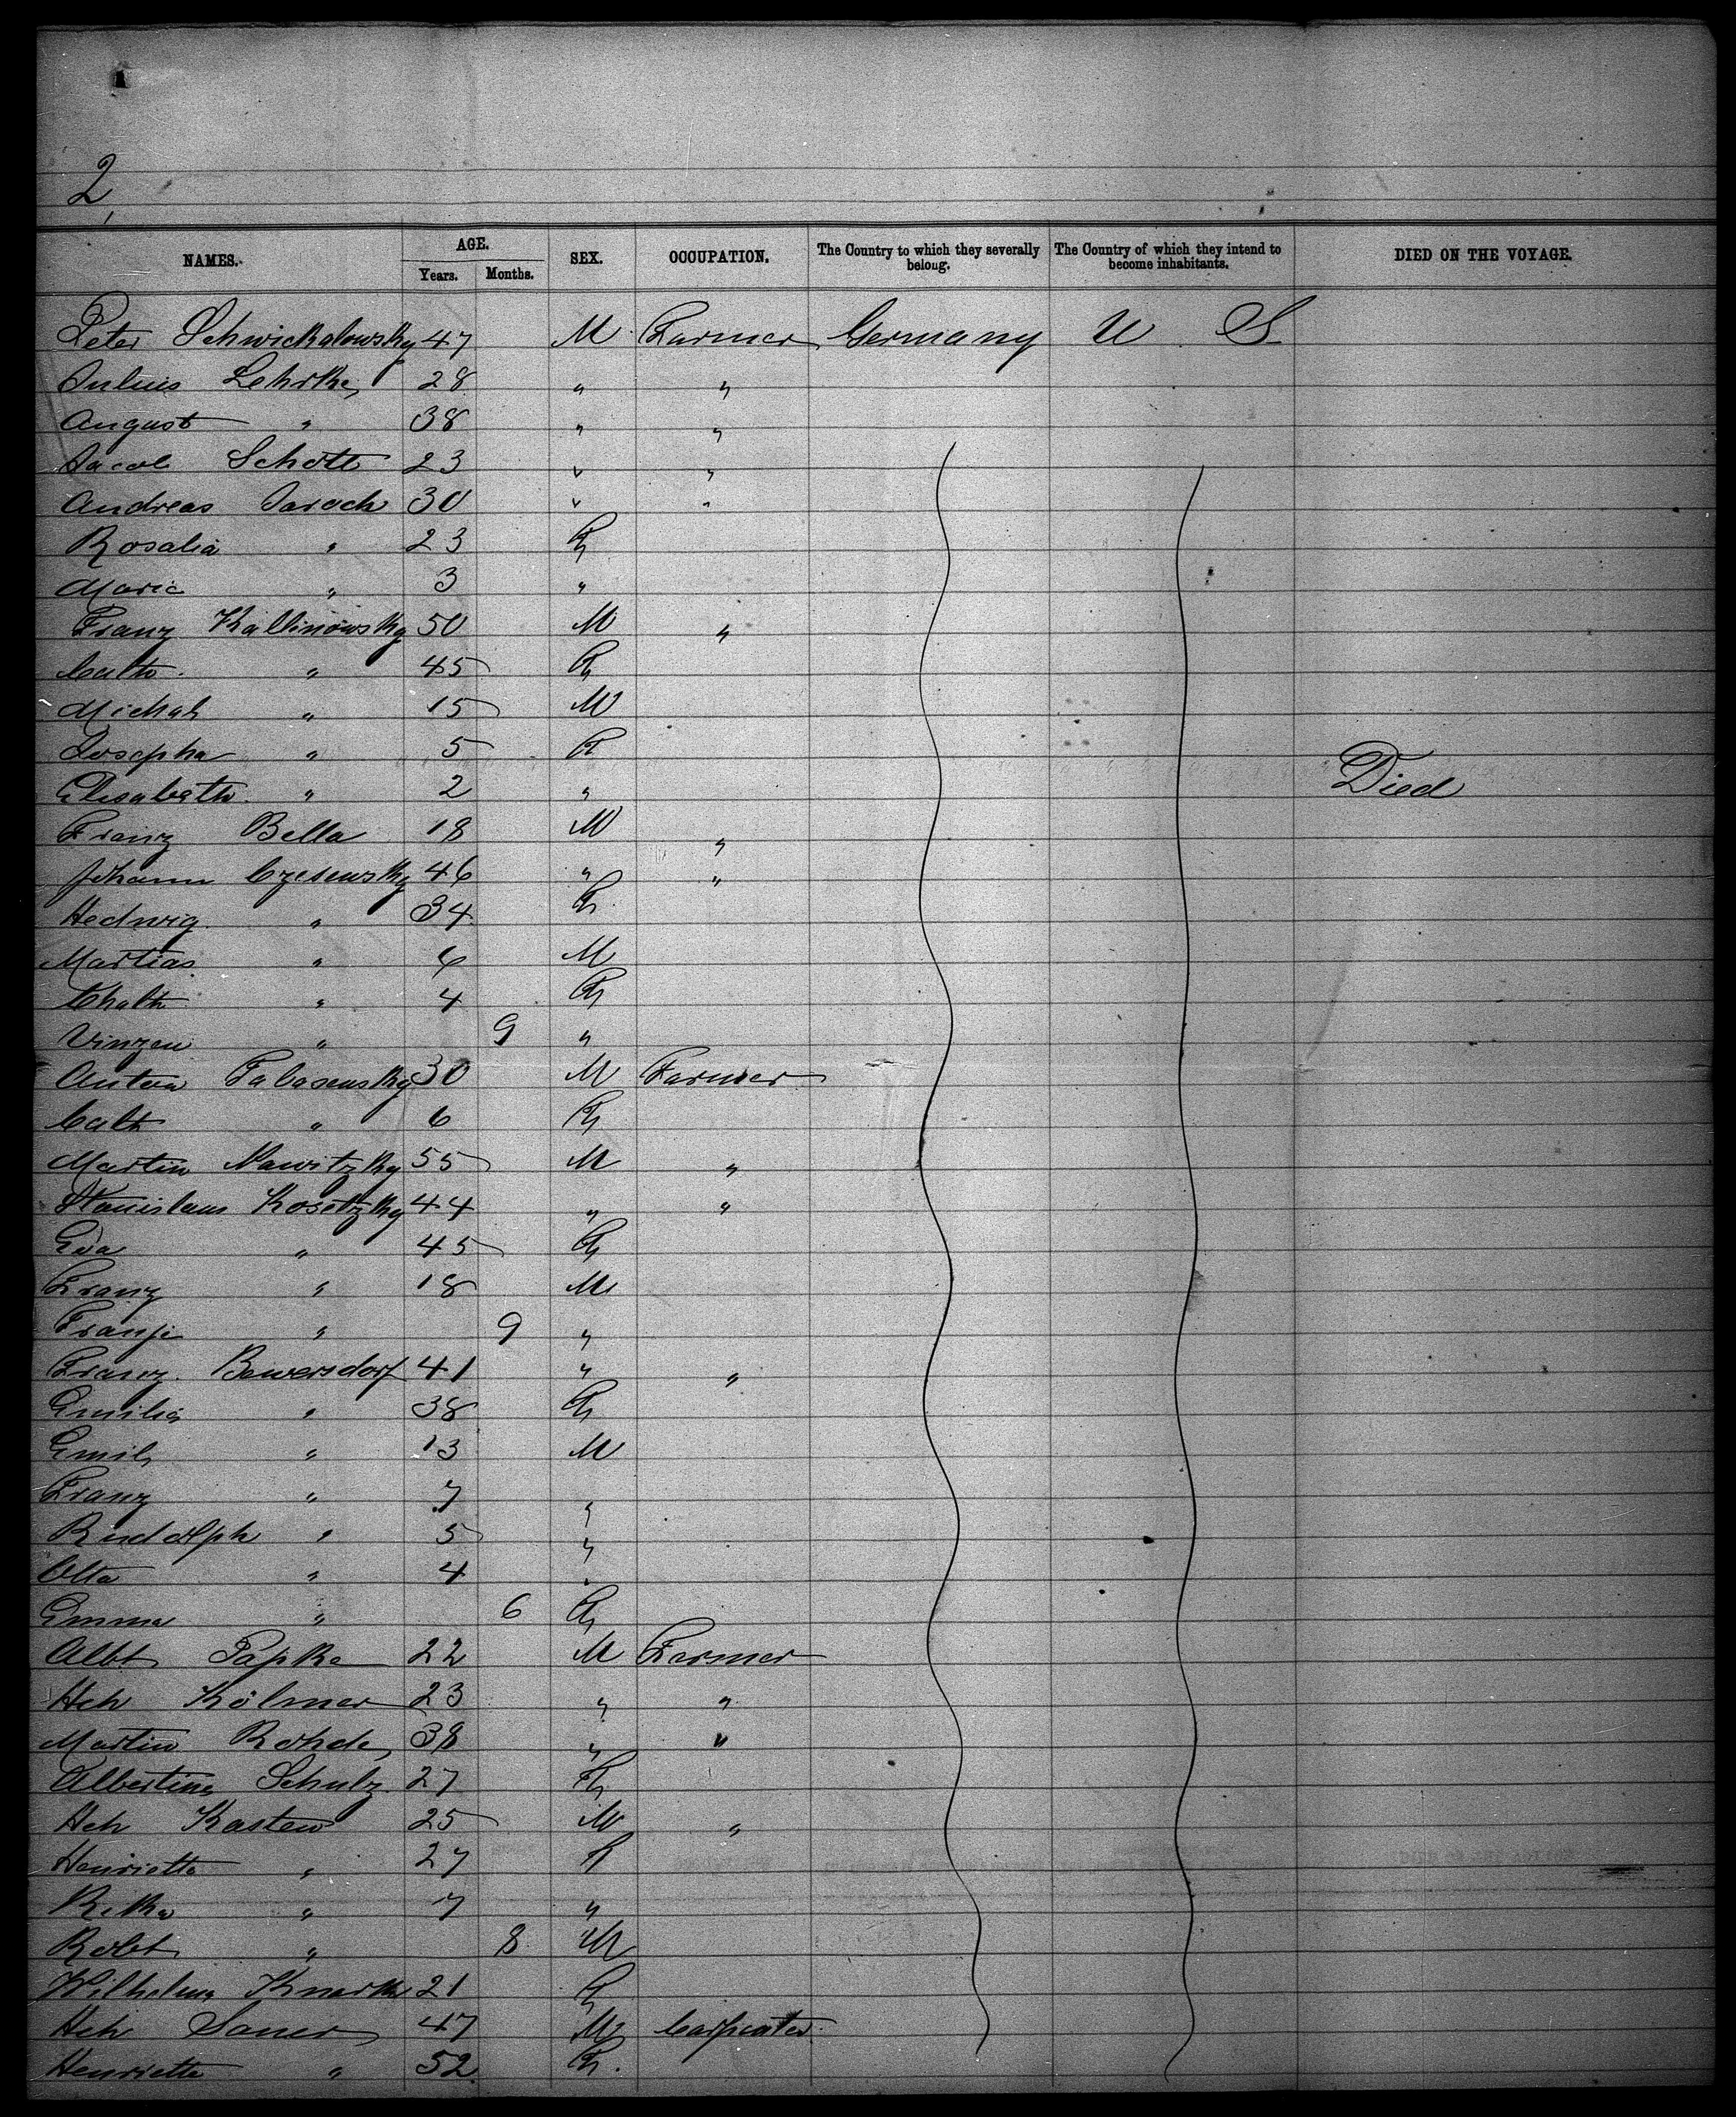 2,
NAMES. AGE. SEX. OCCUPATION. The Country to which they severally belong. The Country of which they intend to become inhabitants. DIED ON THE VOYAGE.
Years. Months.
Peter Schwickalowsky 47 M Farmer Germany U S
Julius Lehrke 28 " "
August " 38 " "
Jacob Schott 23 " "
Andreas Jarach 30 " "
Rosalia " 23 F
Marie " 3 "
Franz Kallinowsky 50 M "
Cath. " 45 F
Michal " 15 M
Josepha " 5 F
Elisabeth " 2 " Died
Franz Bella 18 M "
Johann Czesewsky 46 " "
Hedwig " 34 F
Martias " 6 M
Chath " 4 F
Vinzen " 9 "
Anton 30 M Farmer
Cath " 6 F
Martin Nawitzky 55 M "
Stanislaus Kosetzky 44 " "
Eva " 45 F
Franz " 18 M
" 9 "
Franz Bewersdorf 41 " "
Emilia " 38 F
Emil " 13 M
Franz " 7 "
Rudolph " 5 "
Otto " 4 "
Emma " 6 F
Albt Papke 22 M Farmer
Hch Kölmer 23 " "
Martin Rohde 38 " "
Albertine Schulz 27 F
Hch Kasten 25 M "
Henriette " 27 F
" 7 "
Robt " 8 M
Wilhelmine 21 F
Hch Sauer 47 M Carpenter
Henriette " 52 F